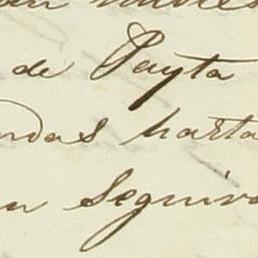 de Payta
ndas hasta
n seguir